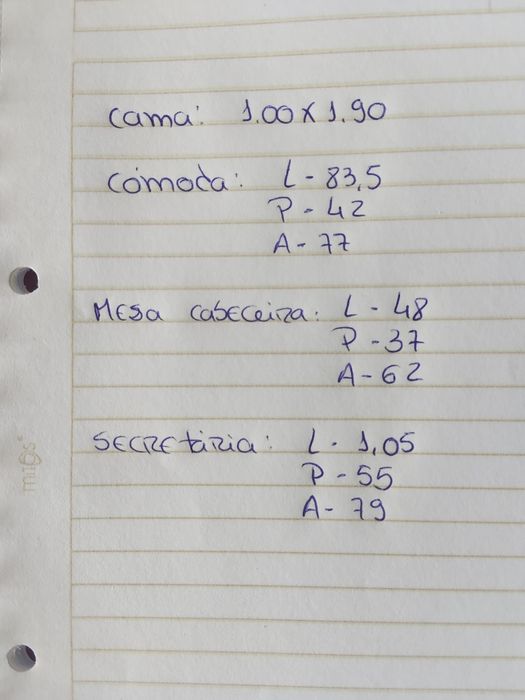 Cama: 1.00 x 1.90
Cómoda: L - 83,5
P - 42
A - 77
Mesa cabeceira: L - 48
P - 37
A - 62
Secretária: L - 1,05
P - 55
A - 79
mios